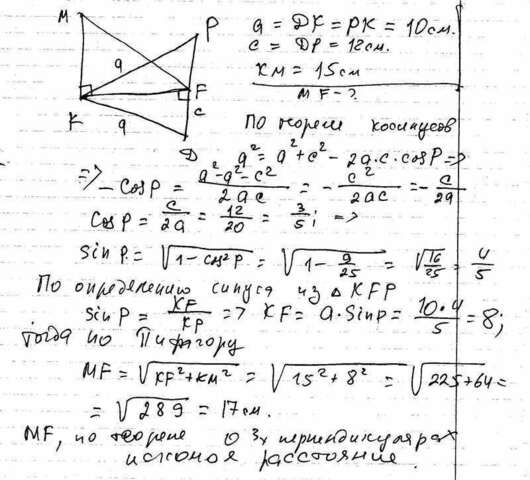 M
P
a
F
K
C
a
D
a = DK = PK = 10 см.
c = DP = 12 см.
KM = 15 см
MF - ?
По теореме косинусов
a² = a² + c² - 2a·c·cosP =>
=> - cosP = (a² - a² - c²)/(2ac) = - c²/(2ac) = - c/(2a)
CosP = c/(2a) = 12/20 = 3/5; =>
SinP = √(1 - cos²P) = √(1 - 9/25) = √(16/25) = 4/5
По определению синуса из △KFP
SinP = KF/KP => KF = a·SinP = (10·4)/5 = 8;
тогда по Пифагору
MF = √(KF² + KM²) = √(15² + 8²) = √(225 + 64) =
= √289 = 17 см.
MF, по теореме о 3х перпендикулярах
искомое расстояние.